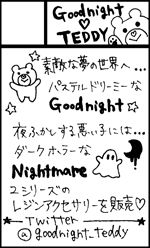 Goodnight
♡
TEDDY
素敵な夢の世界へ...
パステルドリーミーな
Goodnight☆
夜ふかしする悪い子には...
ダークホラーな
Nightmare
2シリーズの
レジンアクセサリーを販売♡
★Twitter★
@goodnight_teddy